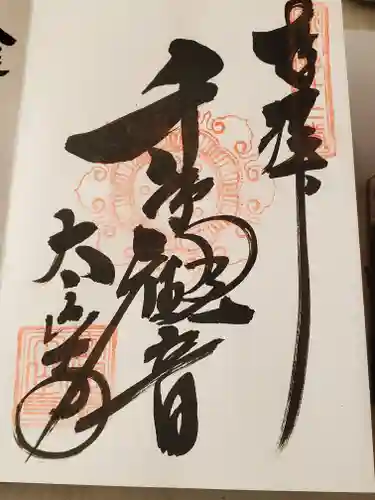 奉拝
千手観音
太山寺